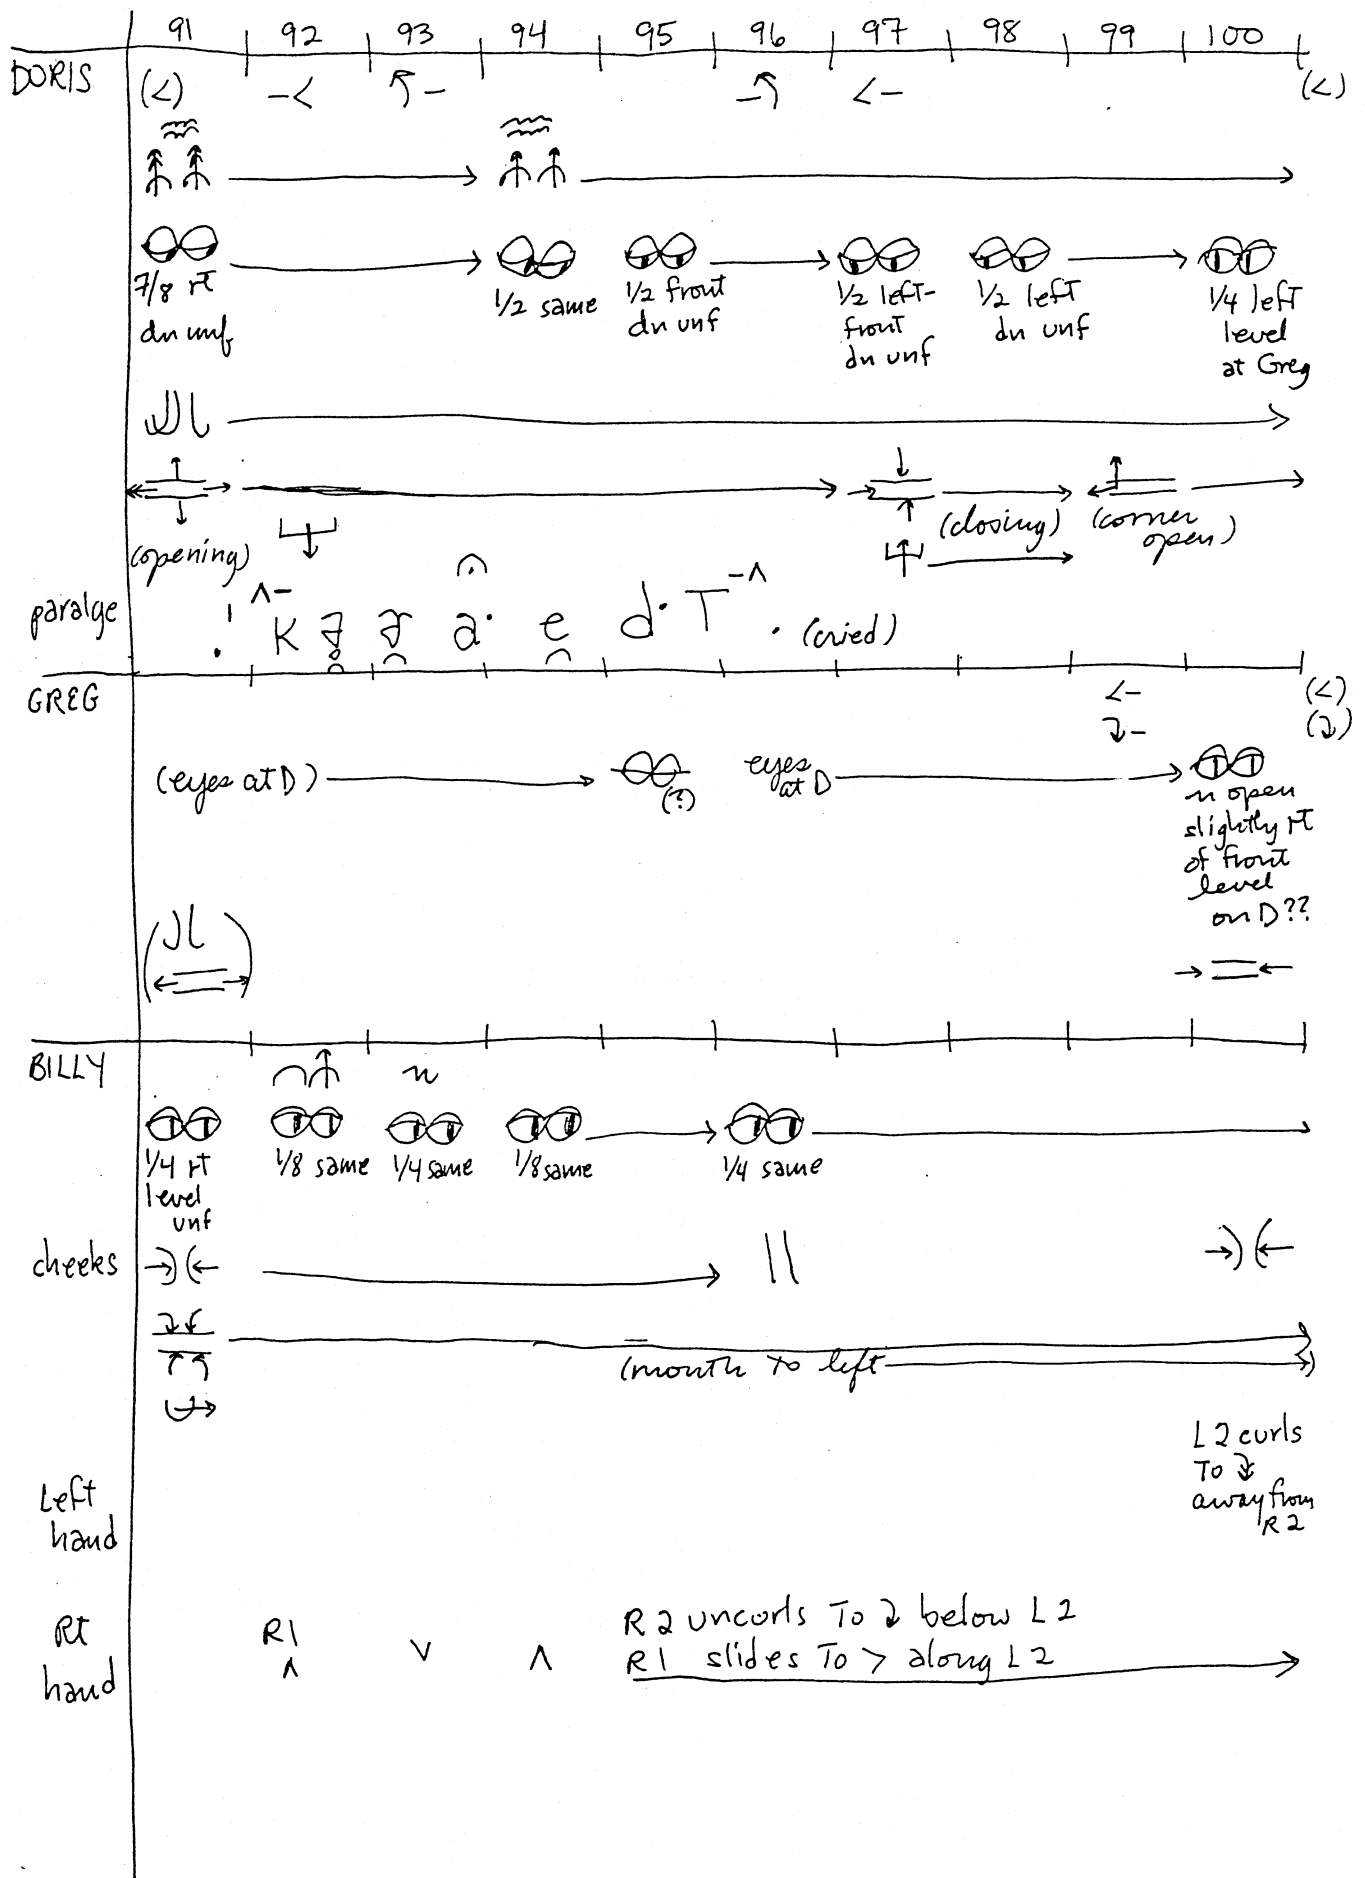 91 92 93 94 95 96 97 98 99 100
DORIS
7/8 rt
dn unf
1/2 same
1/2 front
dn unf
1/2 left-
front
dn unf
1/2 left
dn unf
1/4 left
level
at Greg
(opening)
(closing)
(corner
open)
paralge
(cried)
GREG
(eyes at D)
(?)
eyes
at D
n open
slightly rt
of front
level
on D??
BILLY
n
1/4 rt
level
unf
1/8 same
1/4 same
1/8 same
1/4 same
cheeks
(mouth to left
Left
hand
L2 curls
To
away from
R2
Rt
hand
R1
R2 uncurls To below L2
R1 slides To > along L2